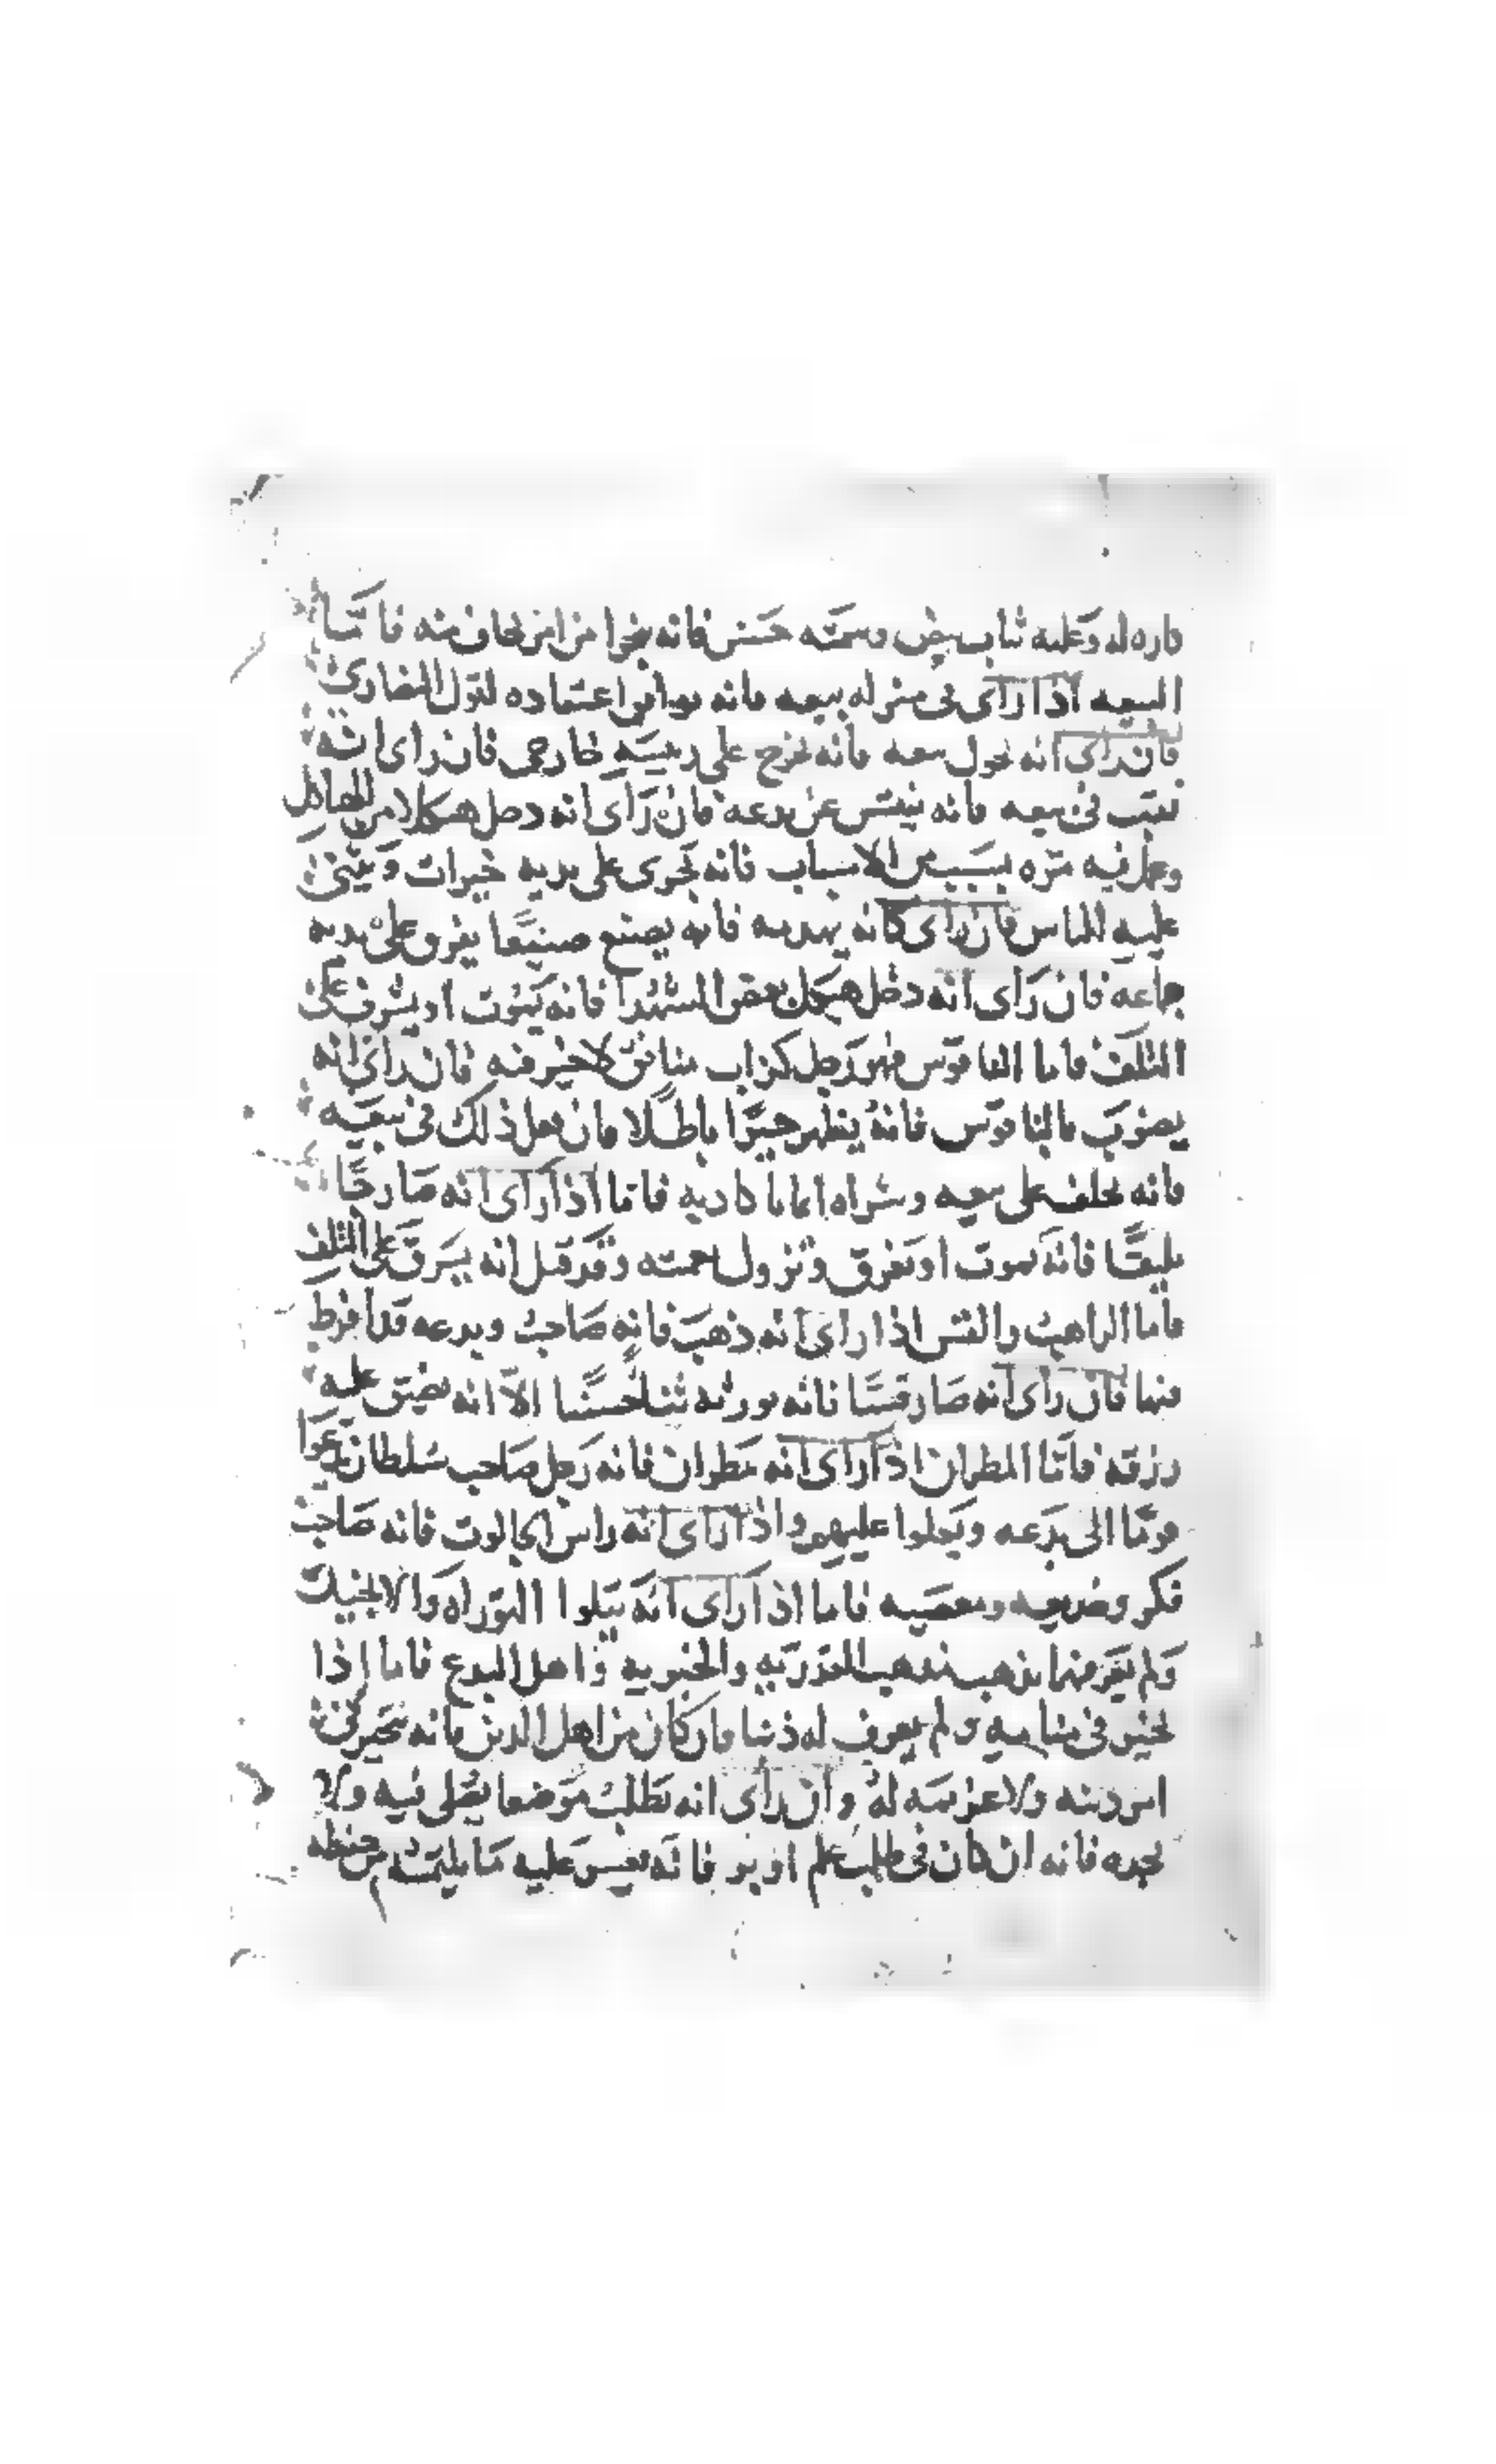 فاره له وعليه ثياب بيض وسمته حسن فانه ينجوا من امر يخاف منه فاما
البيعه اذا راى فى منزله بيعه فانه اعتماده لقول النصارى
فان راى انه تحول بيعه فانه يخرج على رعيته خارجى فان راى انه
نقب فى بيعه فانه يفتش عن بدعه فان راى انه دخل هيكلا من الهياكل
وعمل فيه مره بسبب من الاسباب فانه تجرى على يديه خيرات ويثنى
عليه الناس فان راى كانه يهدمه فانه يصنع صنيعا يغرو على يديه
جماعه فان راى انه دخل هيكل بعض الشهدا فانه يموت او يشرف على
التلف فاما الناقوس فهو رجل كذاب منافق لا خير فيه فان راى انه
يضرب بالناقوس فانه يظهر خبرا باطلا فان فعل ذلك فى بيعه
فانه يحلف على بيعه وشراه ايمانا كاذبه فاما اذا راى انه صار
فانه يموت او يغرق وتزول نعمته وقد قيل انه يشرف على التلف
فاما الراهب والقس اذا راى انه ذهب فانه صاحب وبدعه قد افرط
فيها فان راى انه صار قسا فانه يورثه ثنا حسنا الا انه يضيق عليه
رزقه فاما المطران اذا راى انه مطران فانه رجل صاحب سلطان يدعوا
قوما الى بدعه ويعلوا عليهم واذا راى انه راس الجالوت فانه صاحب
فكر وضيعه ومعصيه فاما اذا راى انه يتلوا التوراه والانجيل
ولم يعرفهما يذهب مذهب القدريه والجبريه واهل البدع فاما اذا
تحير فى منامه ولم يعرف له دينا فان كان من اهل الدين فانه يتحير فى
امر دينه ولا عزيمه له وان راى انه يطلب موضعا يصلى فيه ولا
يجده فانه ان كان فى طلب علم او بر فانه يعسر عليه ما يلتمسه من حفظه